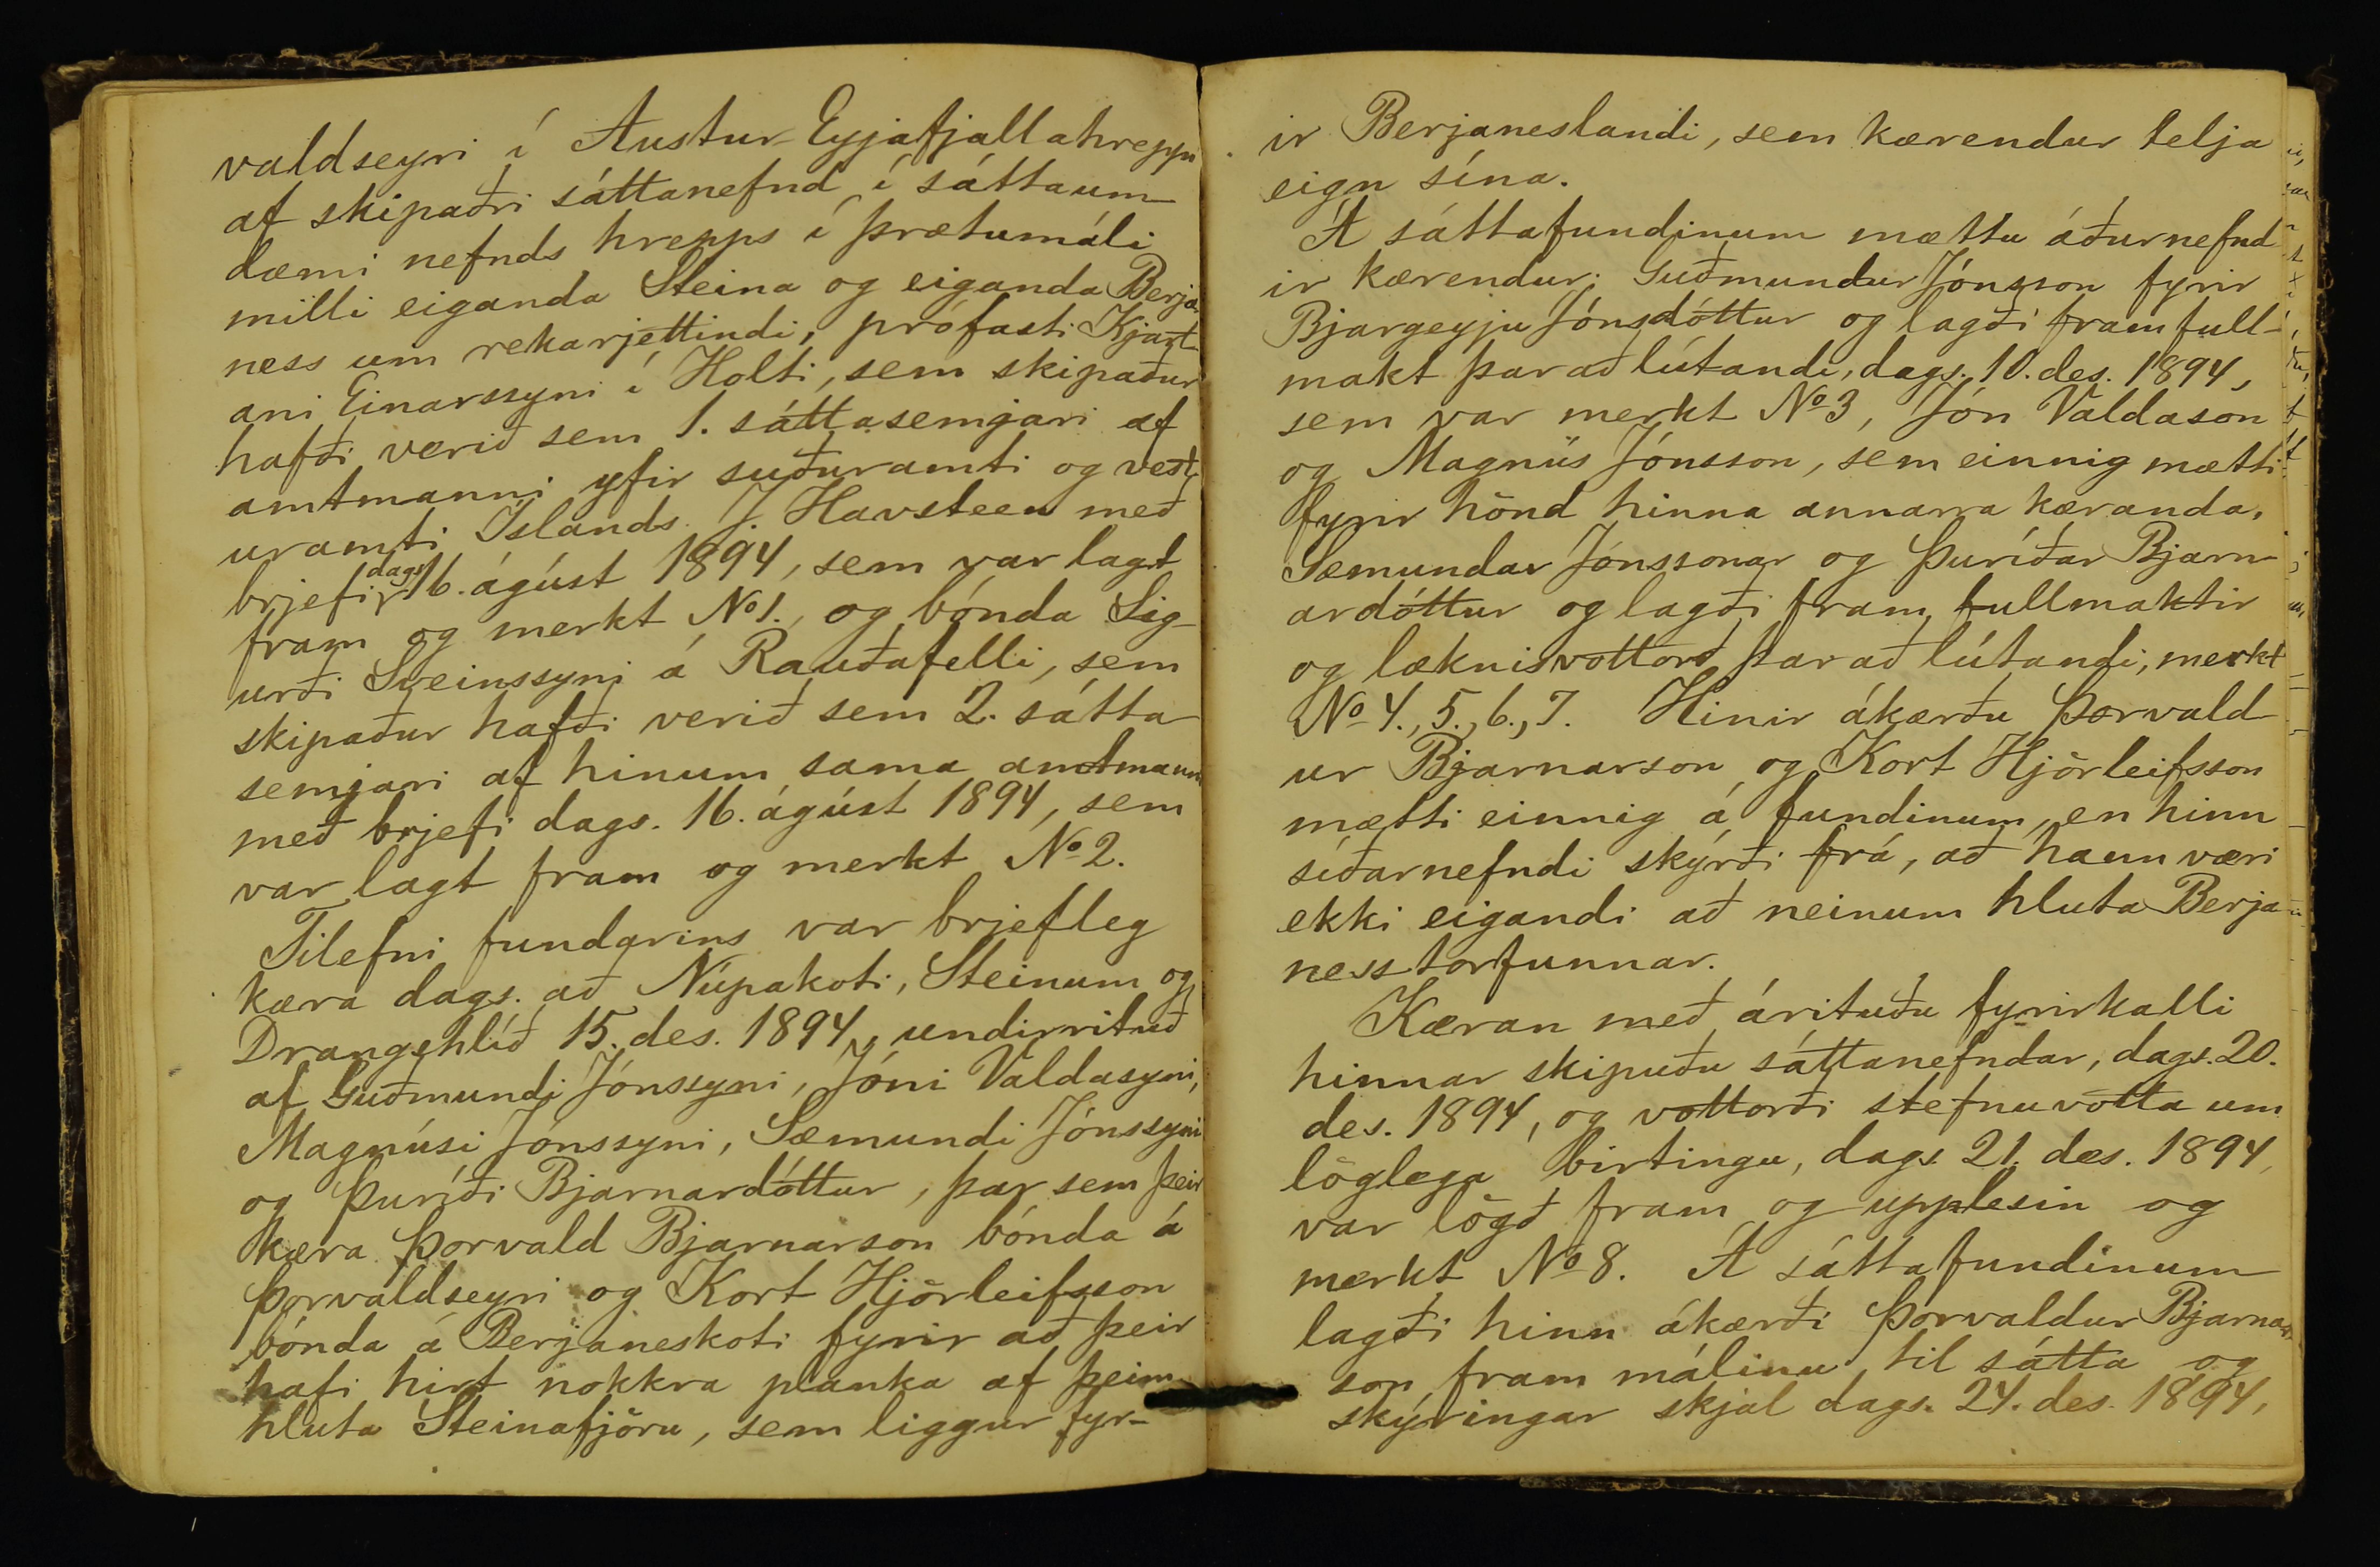 valdseyri í Austur-Eyjafjallahreppi
af skipaðri sáttanefnd í sáttaum-
dæmi nefnds hrepps í þrætumáli
milli eiganda Steina og eiganda Berja-
ness um rekarjettindi, prófasti Kjart-
ani Einarssyni í Holti, sem skipaður
hafði verið sem 1. sáttasemjari af
amtmanni yfir suðuramti og vest-
uramti Íslands J. Havsteen með
brjefi dags. 16. ágúst 1894, sem var lagt
fram og merkt No 1., og bónda Sig-
urði Sveinssyni á Rauðafelli, sem
skipaður hafði verið sem 2. sátta
semjari af hinum sama amtmanni
með brjefi dags. 16. ágúst 1894, sem
var lagt fram og merkt No 2.
Tilefni fundarins var brjefleg
kæra dags. að Núpakoti, Steinum og
Drangshlíð 15. des. 1894, undirrituð
af Guðmundi Jónssyni, Jóni Valdasyni,
Magnúsi Jónssyni, Sæmundi Jónssyni
og Þuríði Bjarnardóttur, þar sem þeir
kæra Þorvald Bjarnarson bónda á
Þorvaldseyri og Kort Hjörleifsson
bónda á Berjaneskoti fyrir að þeir
hafi hirt nokkra planka af þeim
hluta Steinafjöru, sem liggur fyr-
ir Berjaneslandi, sem kærendur telja
eign sína.
Á sáttafundinum mættu áðurnefnd-
ir kærendur: Guðmundur Jónsson fyrir
Bjargeyju Jónsdóttur og lagði fram full-
makt þar að lútandi, dags. 10. des. 1894,
sem var merkt No 3, Jón Valdason
og Magnús Jónsson, sem einnig mætti
fyrir hönd hinna annarra kæranda,
Sæmundar Jónssonar og Þuríðar Bjarn-
ardóttur og lagði fram fullmaktir
og læknisvottorð þar að lútandi, merkt
No 4., 5., 6., 7. Hinir ákærðu Þorvald-
ur Bjarnarson og Kort Hjörleifsson
mætti einnig á fundinum, en hinn
síðarnefndi skýrði frá, að hann væri
ekki eigandi að neinum hluta Berja-
nesstorfunnar.
Kæran með árituðu fyrirkalli
hinnar skipuðu sáttanefndar, dags. 20.
des. 1894, og vottorði stefnuvotta um
löglega birtingu, dags. 21. des. 1894,
var lögð fram og upplesin og
merkt No 8. Á sáttafundinum
lagði hinn ákærði Þorvaldur Bjarnar-
son fram málinu til sátta og
skýringar skjal dags. 24. des. 1894,